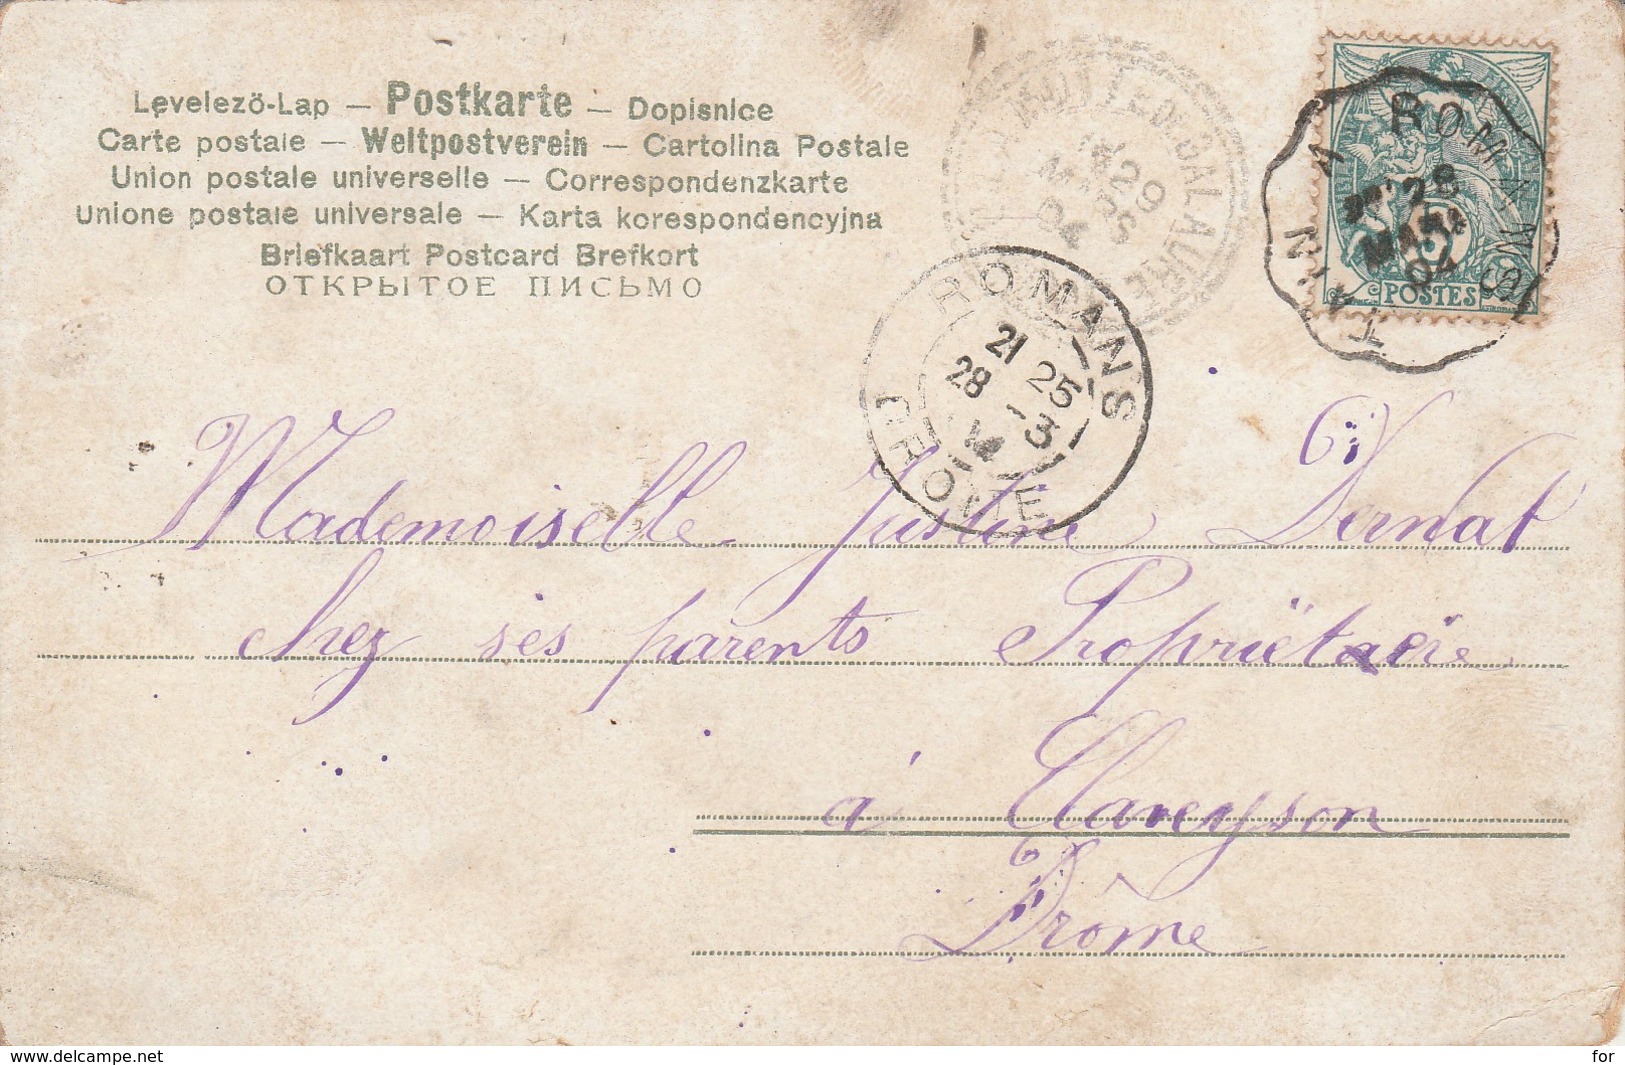 Levelező-Lap — Postkarte — Dopisnice
Carte postale — Weltpostverein — Cartolina Postale
Union postale universelle — Correspondenzkarte
Unione postale universale — Karta korespondencyjna
Briefkaart Postcard Brefkort
ОТКРЫТОЕ ПИСЬМО
ROMANS
21 25
28 3
DROME
29
MARS
04
GALAURE
ROMANS A
28
MARS
04
POSTES
Mademoiselle Justine Dernat
chez ses parents Propriëtaire
à Claveyson
Drôme
www.delcampe.net
for